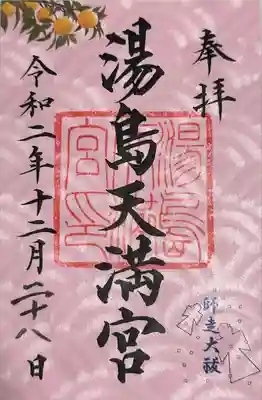 奉拝
湯島天満宮
令和二年十二月二十八日
師走大祓